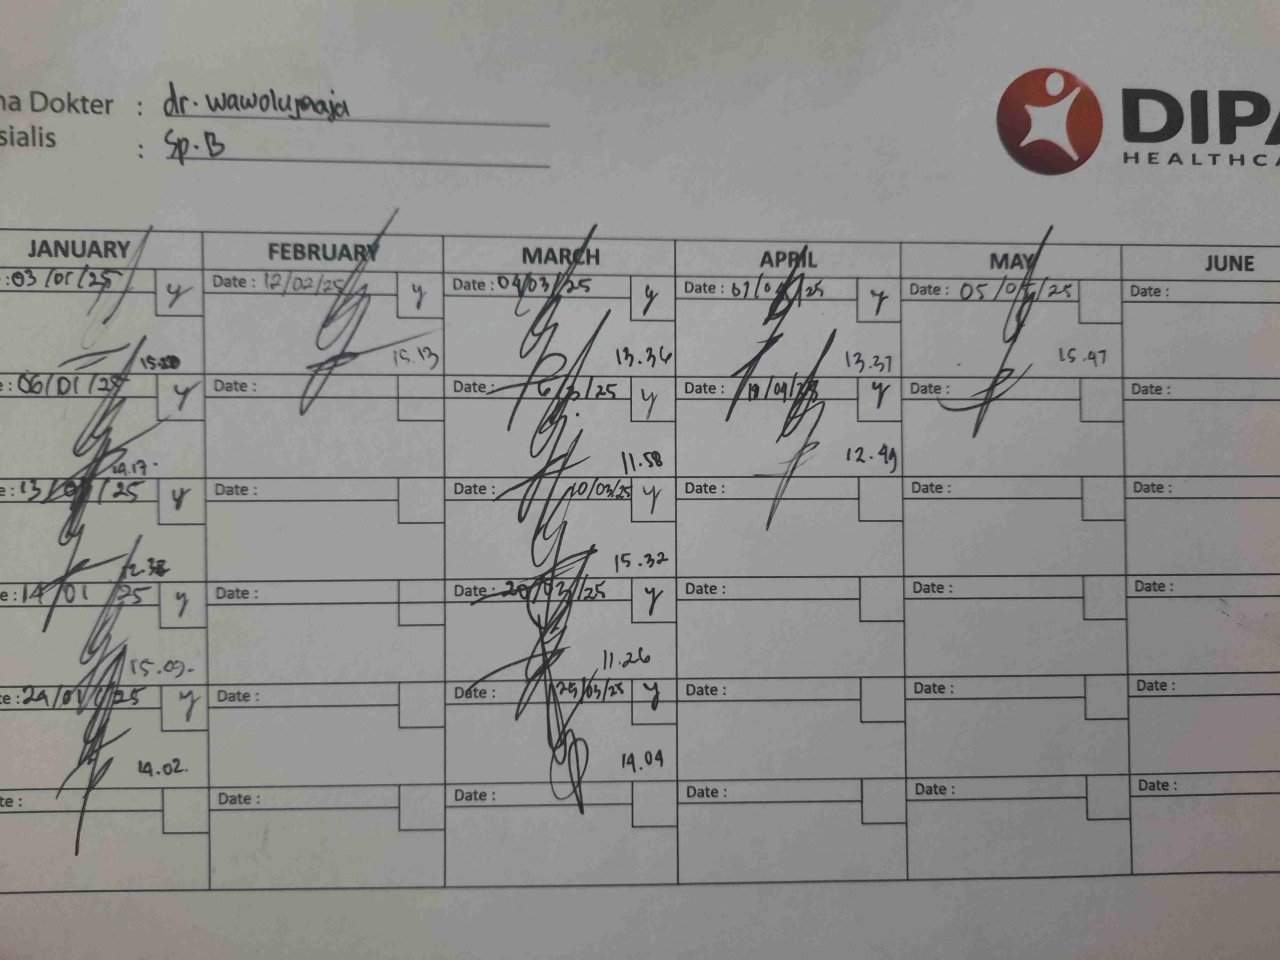 na Dokter : dr. wawolumaja
sialis : Sp.B
DIPA
HEALTHCA
JANUARY FEBRUARY MARCH APRIL MAY JUNE
:03/01/25 y Date : 12/02/25 y Date : 04/03/25 y Date : 07/04/25 y Date : 05/05/25 Date :
15.13 13.36 13.37 15.47
e : 06/01/25 y Date : Date : 6/3/25 y Date : 19/04/25 y Date : Date :
14.17. 11.58 12.49
e : 13/01/25 y Date : Date : 10/03/25 y Date : Date : Date :
12.38 15.32
e : 14/01/25 y Date : Date : 20/03/25 y Date : Date : Date :
15.09. 11.26
te : 24/01/25 y Date : Date : 25/03/25 y Date : Date : Date :
14.02. 14.04
te : Date : Date : Date : Date : Date :